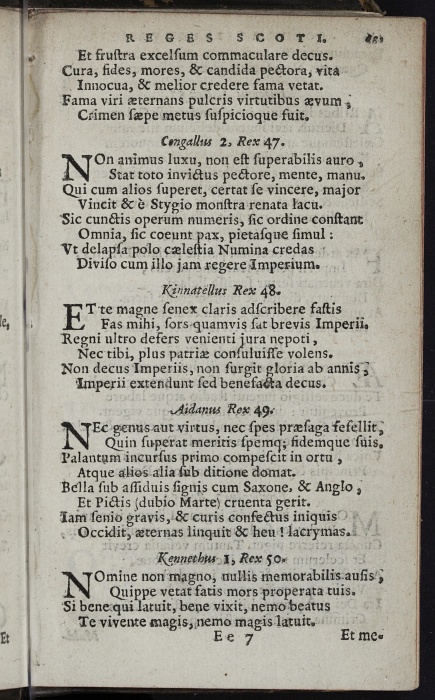 REGES SCOTI.
Et fruſtra excelſum commaculare decus.
Cura, fides, mores, & candida pectora, vita
Innocua, & melior credere fama vetat.
Fama viri æternans pulcris virtutibus ævum,
Crimen ſæpe metus ſuſpicioque fuit.
Congallus 2, Rex 47.
NOn animus luxu, non eſt ſuperabilis auro,
Stat toto invictus pectore, mente, manu.
Qui cum alios ſuperet, certat ſe vincere, major
Vincit & è Stygio monſtra renata lacu.
Sic cunctis operum numeris, ſic ordine conſtant
Omnia, ſic coeunt pax, pietaſque ſimul:
Vt delapſa polo cæleſtia Numina credas
Diviſo cum illo jam regere Imperium.
Kinnatellus Rex 48.
ET te magne ſenex claris adſcribere faſtis
Fas mihi, ſors quamvis ſat brevis Imperii.
Regni ultro defers venienti jura nepoti,
Nec tibi, plus patriæ conſuluiſſe volens.
Non decus Imperiis, non ſurgit gloria ab annis;
Imperii extendunt ſed benefacta decus.
Aidanus Rex 49.
NEc genus aut virtus, nec ſpes præſaga fefellit,
Quin ſuperat meritis ſpemq; fidemque ſuis.
Palantum incurſus primo compeſcit in ortu,
Atque alios alia ſub ditione domat.
Bella ſub aſſiduis ſignis cum Saxone, & Anglo,
Et Pictis (dubio Marte) cruenta gerit.
Iam ſenio gravis, & curis confectus iniquis
Occidit, æternas linquit & heu! lacrymas.
Kennethus 1, Rex 50.
NOmine non magno, nullis memorabilis auſis,
Quippe vetat fatis mors properata tuis.
Si bene qui latuit, bene vixit, nemo beatus
Te vivente magis, nemo magis latuit.
Ee 7 Et me-
Et